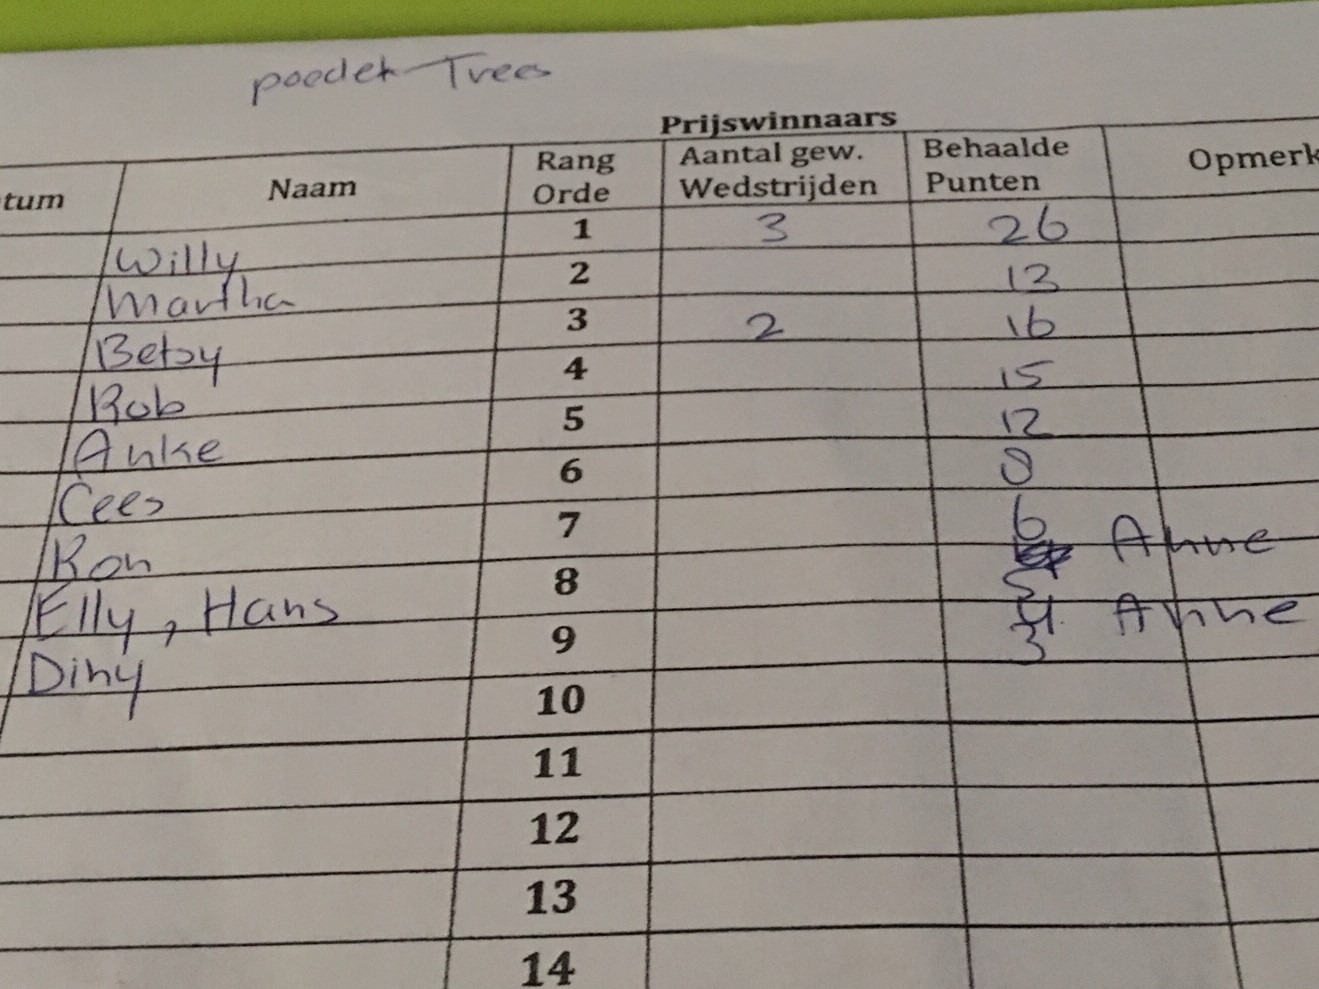 poedel Trees
Prijswinnaars
tum Naam Rang Orde Aantal gew. Wedstrijden Behaalde Punten Opmerk
Willy 1 3 26
Martha 2 13
Betsy 3 2 16
Rob 4 15
Anke 5 12
Cees 6 8
Ron 7 6 Anne
Elly, Hans 8 5 Anne
Diny 9 3
10
11
12
13
14